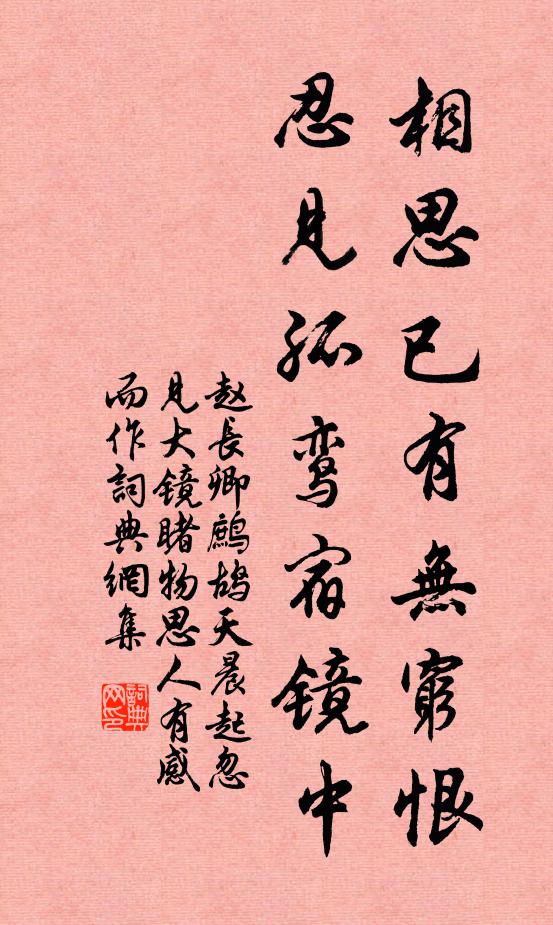 相思已有無窮恨
忍见孤鸾宿镜中
赵長卿鹧鸪天晨起忽
见大镜睹物思人有感
而作詞典網集
詞典网印